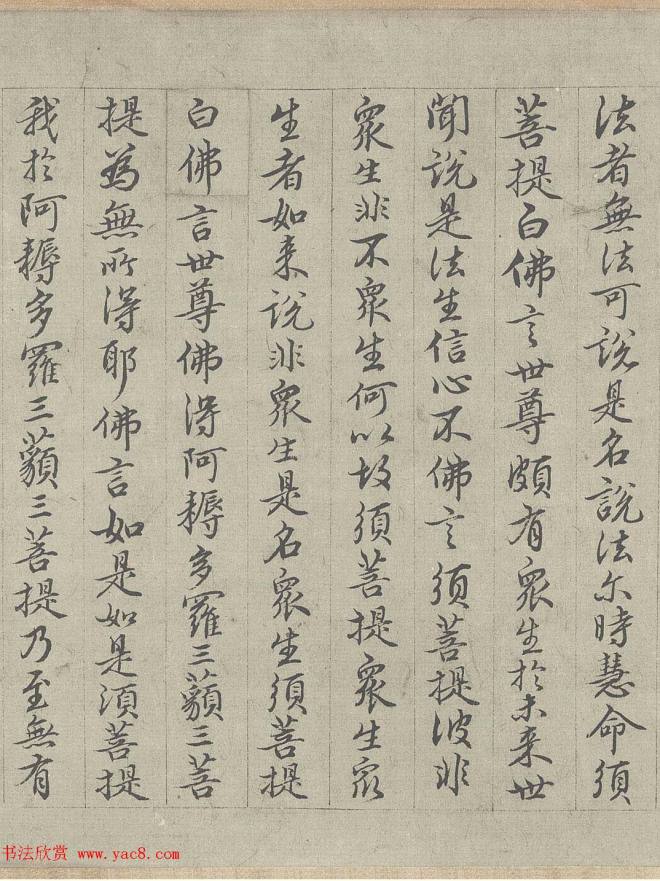 法者無法可說是名說法尒時慧命須
菩提白佛言世尊頗有衆生於未来世
聞說是法生信心不佛言須菩提彼非
衆生非不衆生何以故須菩提衆生衆
生者如来說非衆生是名衆生須菩提
白佛言世尊佛得阿耨多羅三藐三菩
提為無所得耶佛言如是如是須菩提
我於阿耨多羅三藐三菩提乃至無有
书法欣赏 www.yac8.com